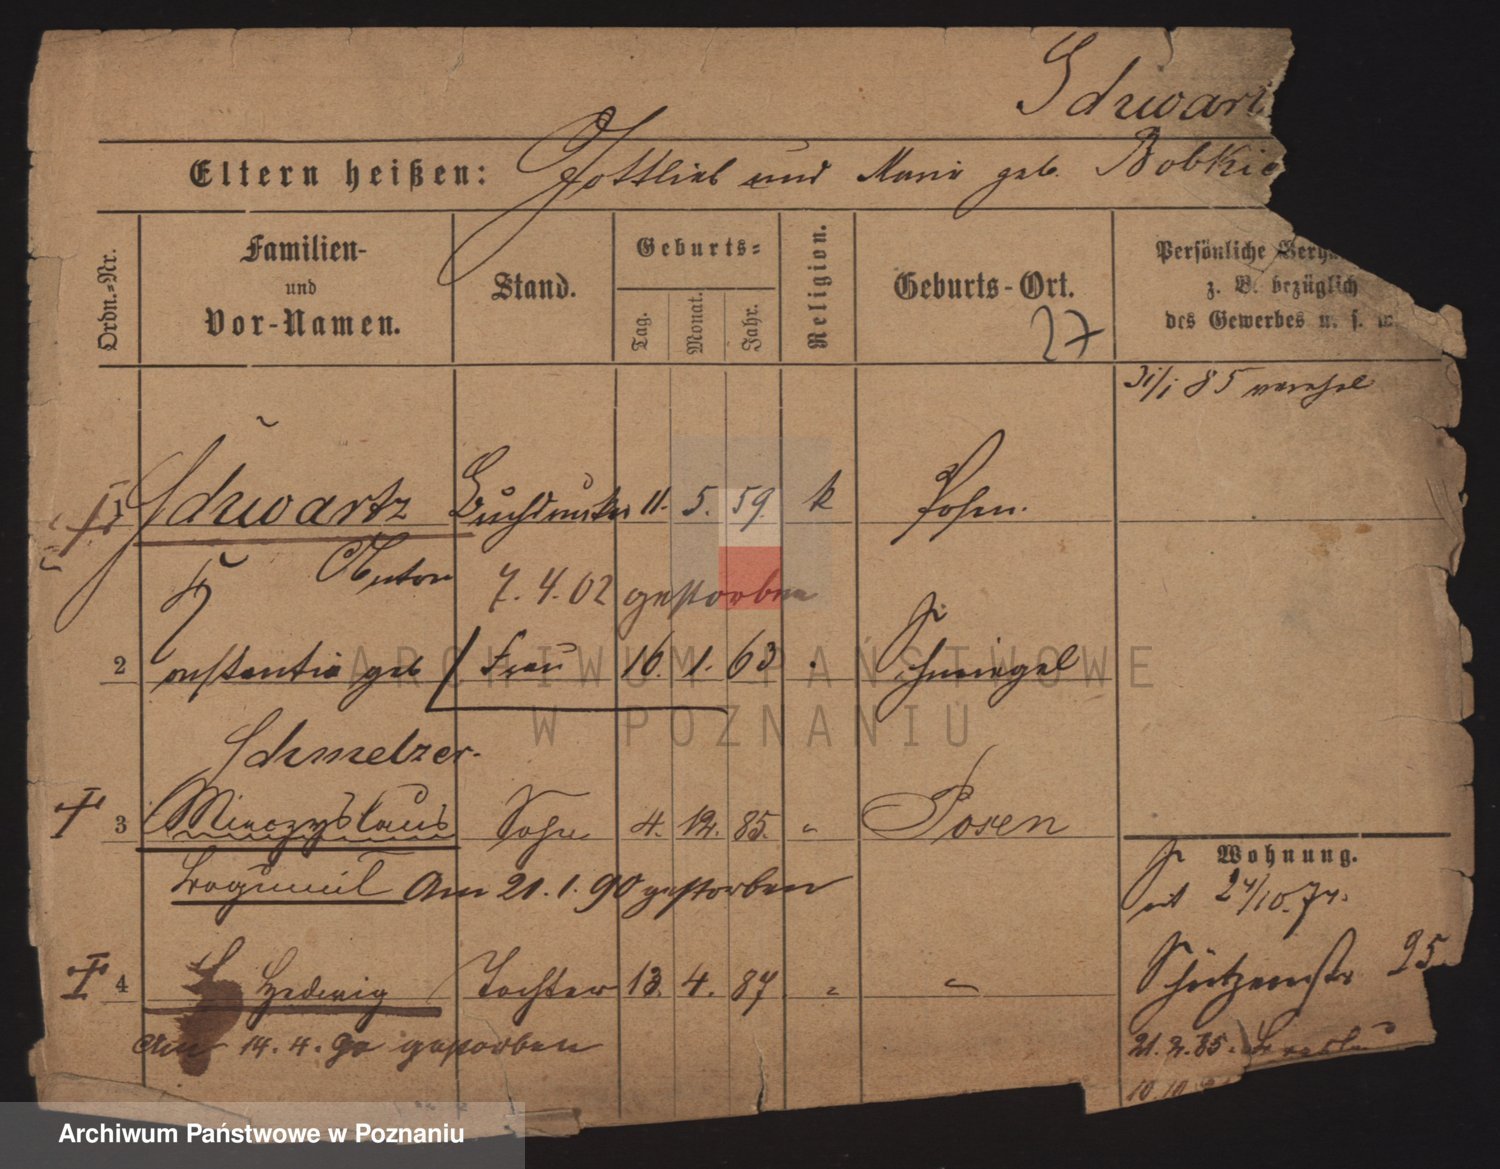 Schwartz
Eltern heißen: Gottlieb und Marie geb. Bobkie
Ordn.-Nr.
Familien-
und
Vor-Namen.
Stand.
Geburts-
Tag.
Monat.
Jahr.
Religion.
Geburts-Ort.
27
Persönliche
z. B. bezüglich
des Gewerbes u. s. w.
31/1 85
1 Schwartz Buchdrucker 11. 5. 59. k Posen.
Anton
7. 4. 02 gestorben
2 Konstantia geb Frau 16. 1. 63 Schmiegel
Schmelzer.
3 Mieczyslaus Sohn 4. 12. 85. " Posen
Bogumil Am 21. 1. 90 gestorben
4 Hedwig Tochter 13. 4. 87 " "
Am 14. 4. 90 gestorben
Wohnung.
seit 24/10. 74.
Schützenstr 25
21. 2. 85. Breslau
10. 10.
ARCHIWUM PAŃSTWOWE
W POZNANIU
Archiwum Państwowe w Poznaniu